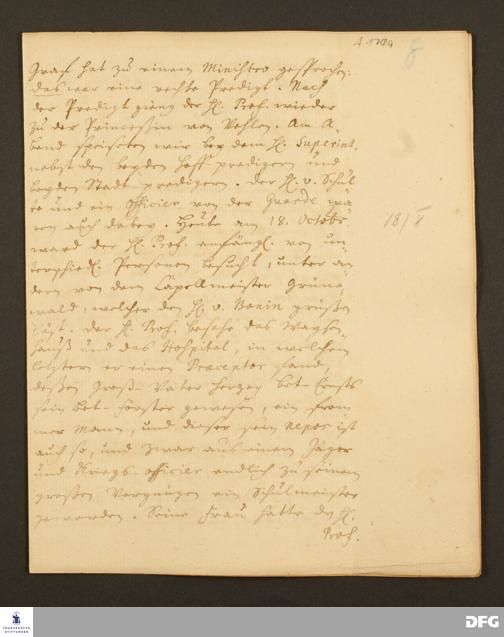 A 179a
8
Graf hat zu einem Ministro gesprochen:
das war eine rechte Predigt. Nach
der Predigt gieng der H. Prof. wieder
zu der Princeßin von Vehlen. Am A-
bend speiseten wir bey dem H. Superint.
nebst den beyden Hoff predigern und
beyden Stadt-predigern. der H. v. Schul
te und ein Officier von der Guarde wa
ren auch dabey. Heute am 18. Octobr.
ward der H. Prof. anfängl. von un
terschiedl. Personen besucht, unter an-
dern von dem Capellmeister Grüne
wald, welcher den H. v. Bonin grüßen
läst. der H. Prof. besahe das Waysen-
hauß und das Hospital, in welchem
letztern er einen Praeceptor fand,
deßen Groß-Vater Herzog Bet-Ernsts
sein Bet-Förster gewesen, ein from
mer Mann, und dieser sein nepos ist
auch so, und zwar aus einem Jäger
und Kriegs-officier endlich zu seinem
großen Vergnügen ein Schulmeister
geworden. Seine Frau hatte der H.
Prof.
18/V
FRANCKESCHE STIFTUNGEN
DFG